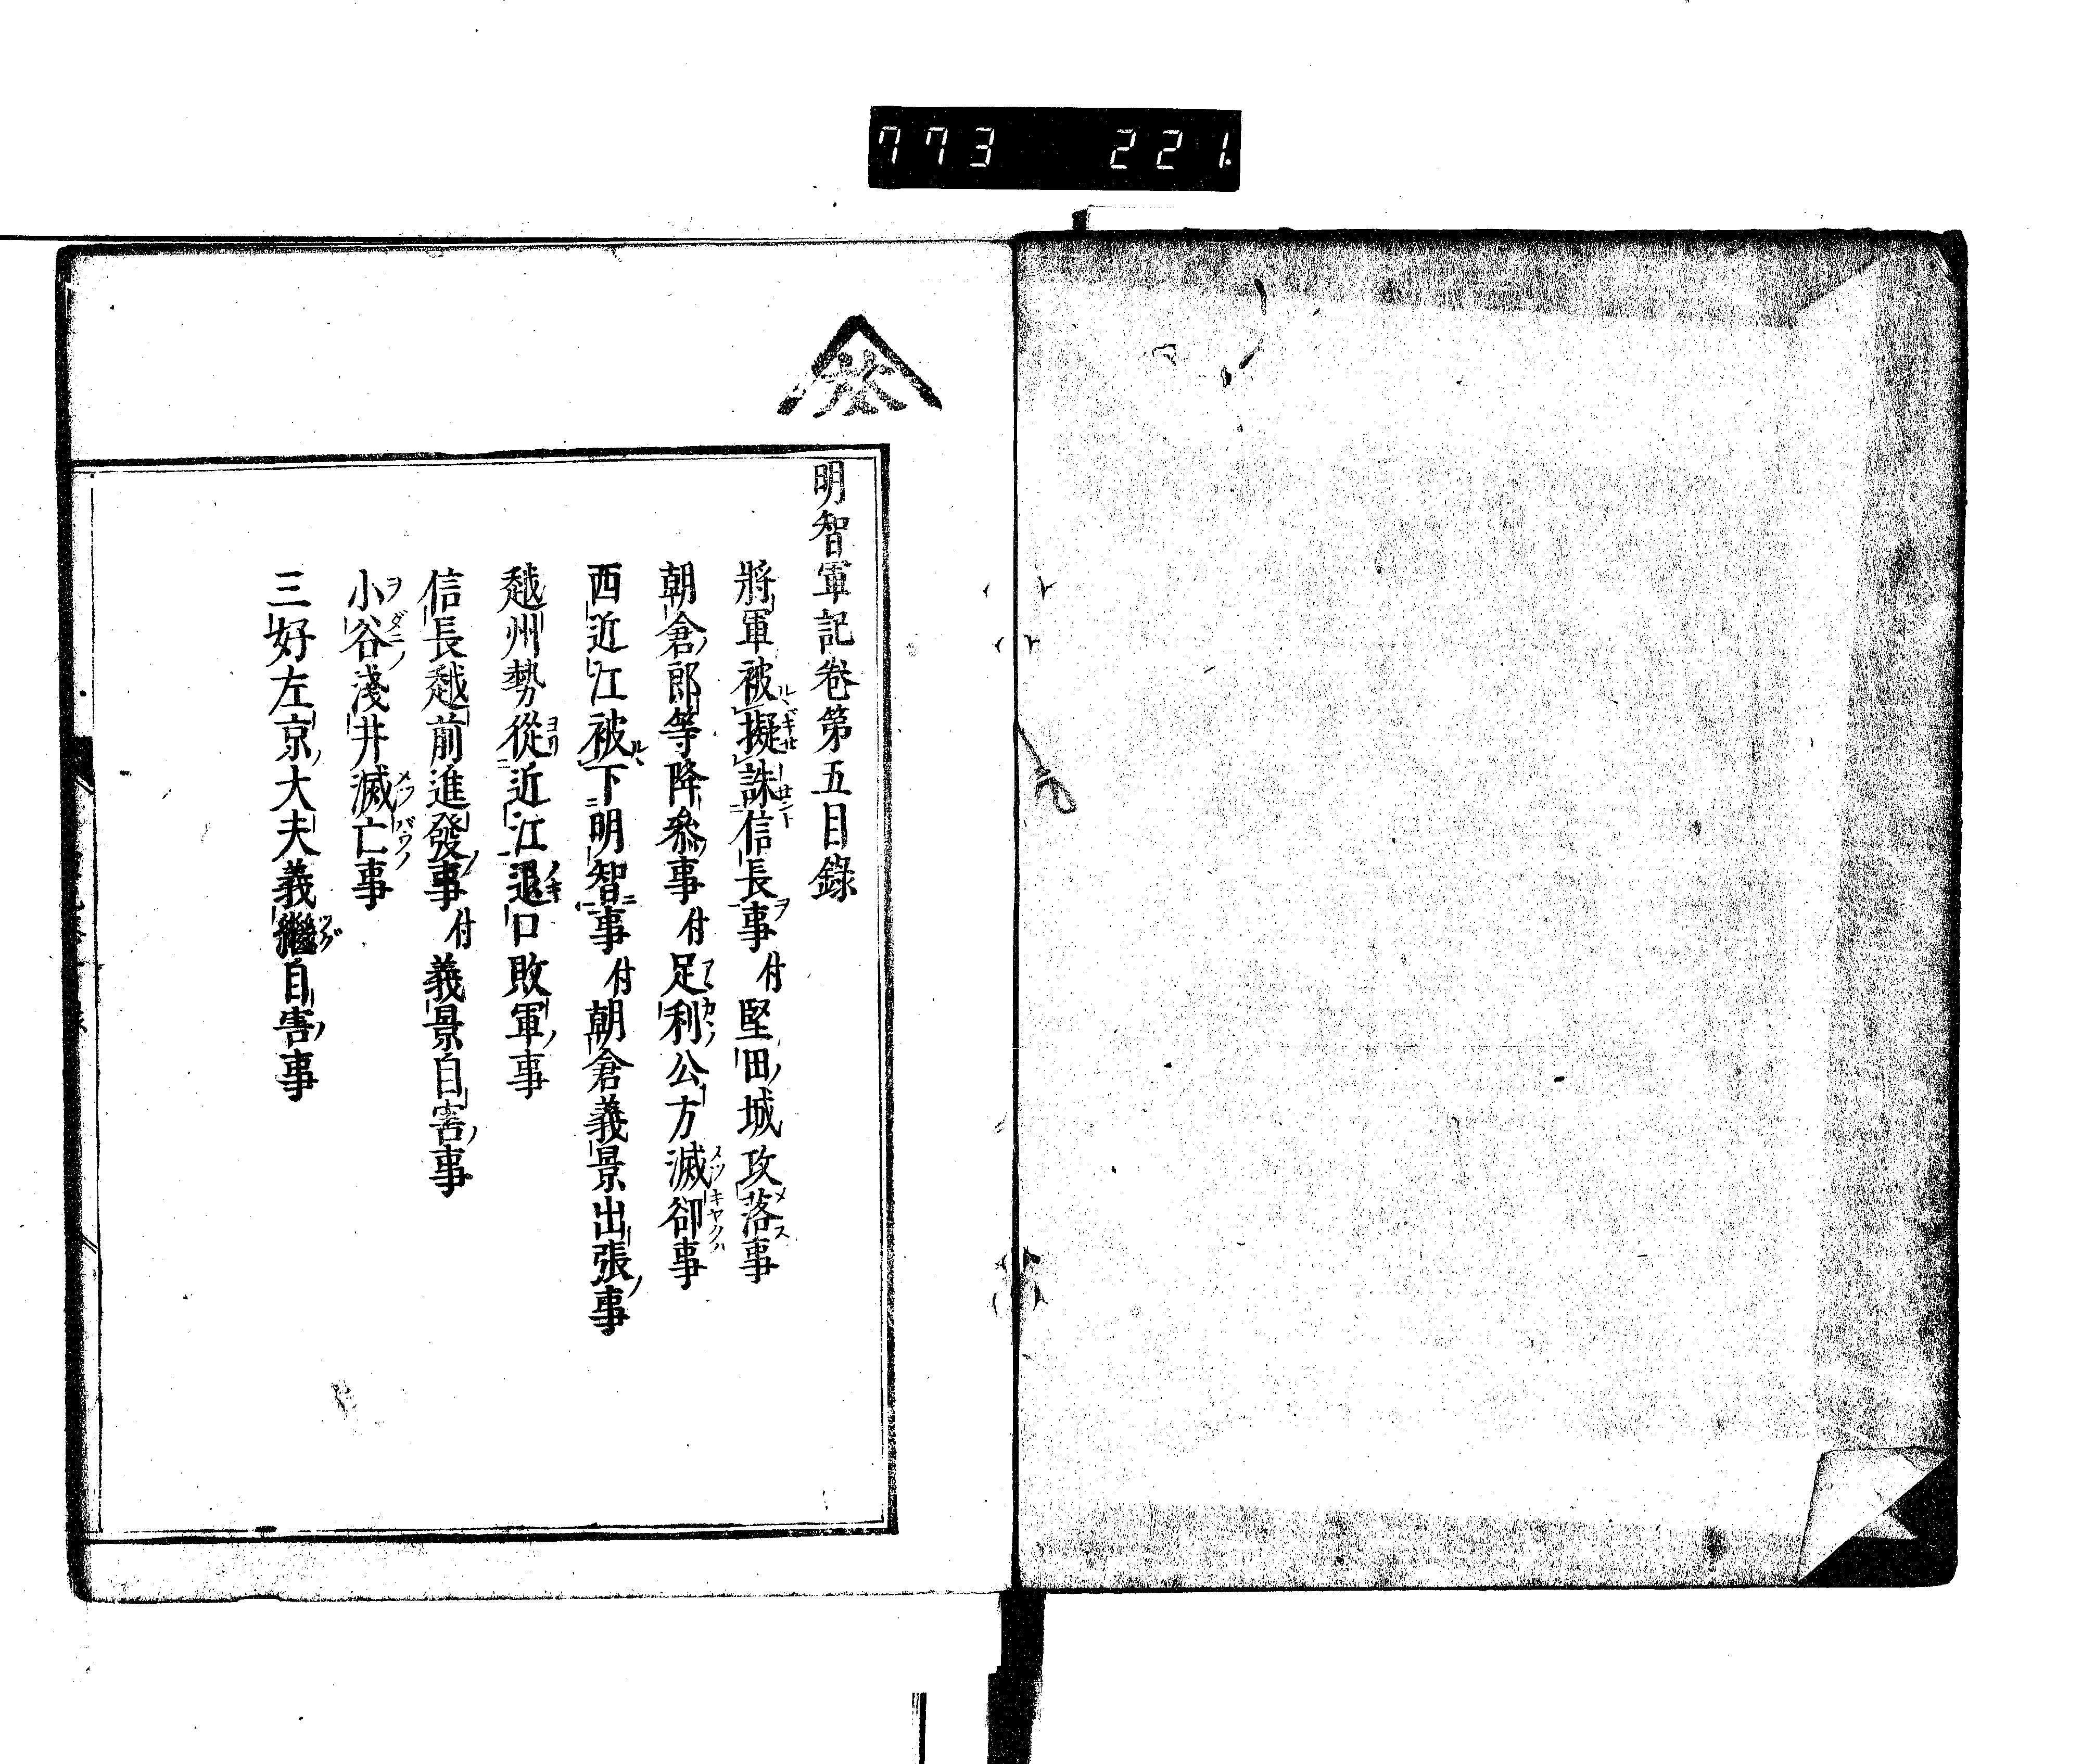 773 221.
明智軍記卷第五目錄
將軍被擬誅信長事付堅田城攻落事
朝倉郎等降參事付足利公方滅卻事
西近江被下明智事付朝倉義景出張事
越州勢從近江退口敗軍事
信長越前進發事付義景自害事
小谷淺井滅亡事
三好左京大夫義繼自害事